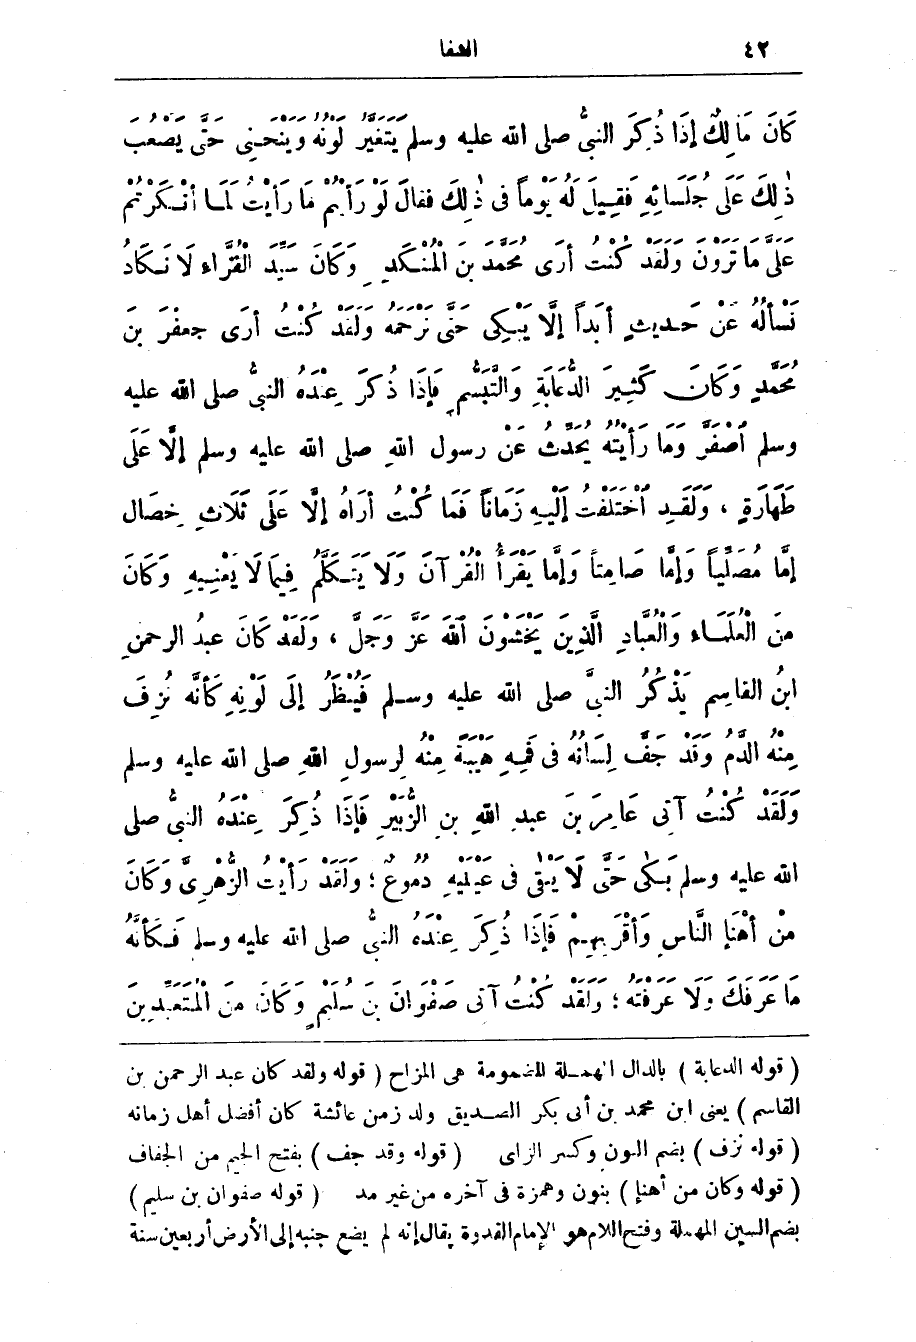 ٤٢
الشفا
كَانَ مَالِكٌ إِذَا ذُكِرَ النبيُّ صلى الله عليه وسلم يَتَغَيَّرُ لَوْنُهُ وينْحَنِى حَتَّى يَصْعُبَ
ذٰلِكَ عَلَى جُلَسَائِهِ فَقِيلَ لَهُ يَوْماً فى ذٰلِكَ فقالَ لَوْ رَأَيْتُمْ مَا رَأَيْتُ لَمَا أنْكَرْتُمْ
عَلَىَّ مَا تَرَوْنَ وَلَقَدْ كُنْتُ أَرَى مُحَمَّدَ بن الْمُنْكَدِرِ وَكَانَ سَيِّدَ الْقُرَّاءِ لَا نَكَادُ
نَسْأَلُهُ عَنْ حَدِيثٍ أَبَداً إلَّا يَبْكِى حَتَّى نَرْحَمَهُ وَلَقَدْ كُنْتُ أَرَى جعفَرَ بنَ
مُحَمَّدٍ وَكَانَ كَثِيرَ الدُّعَابَةِ وَالتَّبَسُّمِ فَإِذَا ذُكِرَ عِنْدَهُ النبيُّ صلى الله عليه
وسلم اُصْفَرَّ وَمَا رَأَيْتُهُ يُحَدِّثُ عَنْ رسول اللهِ صلى الله عليه وسلم إلَّا عَلَى
طَهَارَةٍ ، وَلَقَدِ اُخْتَلَفْتُ إِلَيْهِ زَمَاناً فَمَا كُنْتُ أَرَاهُ إلَّا عَلَى ثَلَاثِ خِصَال
إمَّا مُصَلِّياً وَإِمَّا صَامِتاً وَإِمَّا يَقْرَأُ الْقُرْآنَ وَلَا يَتَكَلَّمُ فِيمَا لَا يَعْنِيهِ وَكَانَ
منَ الْعُلَمَاءِ وَالْعُبَّادِ الَّذِينَ يَخْشَوْنَ اللهَ عَزَّ وَجَلَّ ، وَلَقَدْ كَانَ عبدُ الرحمنِ
ابنُ القاسِمِ يَذْكُرُ النبيَّ صلى الله عليه وسلم فَيُنْظَرُ إلَى لَوْنِهِ كَأَنَّهُ نُزِفَ
مِنْهُ الدَّمُ وَقَدْ جَفَّ لِسَانُهُ فى فَمِهِ هَيْبَةً مِنْهُ لِرسولِ اللهِ صلى الله عليه وسلم
وَلَقَدْ كُنْتُ آتى عَامِرَ بنَ عبدِ اللهِ بنِ الزُّبَيْرِ فَإِذَا ذُكِرَ عِنْدَهُ النبيُّ صلى
الله عليه وسلم بَكَى حَتَّى لَا يَبْقَى فى عَيْنَيْهِ دُمُوعٌ ؛ وَلَقَدْ رَأَيْتُ الزُّهْرِىَّ وَكَانَ
مِنْ أَهْنَإِ النَّاسِ وَأَقْرَبِهِمْ فَإِذَا ذُكِرَ عِنْدَهُ النبيُّ صلى الله عليه وسلم فَكَأَنَّهُ
مَا عَرَفَكَ وَلَا عَرَفْتَهُ ؛ وَلَقَدْ كُنْتُ آتى صَفْوَانَ بنَ سُلَيْمٍ وَكَانَ منَ الْمُتَعَبِّدِينَ
( قوله الدعابة ) بالدال المهملة المضمومة هى المزاح ( قوله ولقد كان عبد الرحمن بن
القاسم ) يعنى ابن محمد بن أبى بكر الصديق ولد زمن عائشة كان أفضل أهل زمانه
( قوله نزف ) بضم النون وكسر الزاى ( قوله وقد جف ) بفتح الجيم من الجفاف
( قوله وكان من أهنإ ) بنون وهمزة فى آخره من غير مد ( قوله صفوان بن سليم )
بضم السين المهملة وفتح اللام هو الإمام القدوة يقال إنه لم يضع جنبه إلى الأرض أربعين سنة